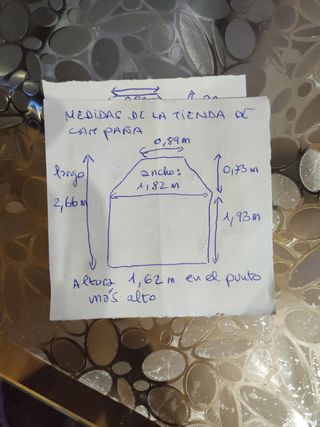 MEDIDAS DE LA TIENDA DE
CAMPAÑA
0,89m
largo
2,66m
ancho:
1,82m
0,73m
1,93m
Altura 1,62m en el punto
más alto